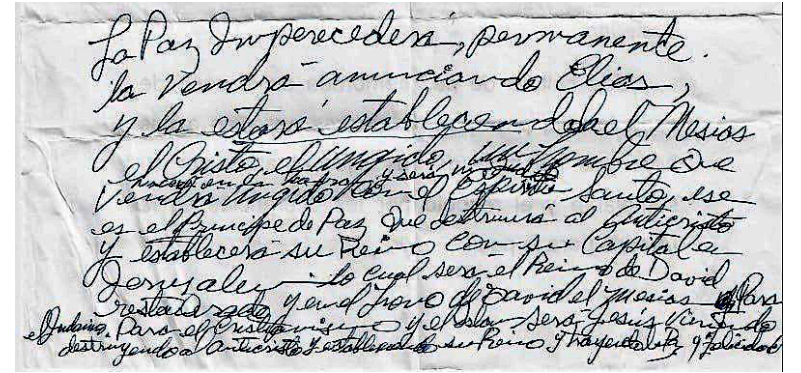 La Paz Imperecedera, permanente.
la Vendrá anunciando Elías,
y la estará estableciendola el Mesías
el Cristo, el Ungido, un hombre que
nacerá en la tierra y será
Vendrá Ungido con el Espíritu Santo, ese
es el Príncipe de Paz que destruirá al Anticristo
y establecerá su Reino con su Capital en
Jerusalen lo cual será el Reino de David
restaurado y en el Trono de David el Mesías Para
el Judaismo. Para el Cristianismo y el Islam será Jesús viniendo
destruyendo a Anticristo y estableciendo su Reino y trayendo la Paz y felicidad